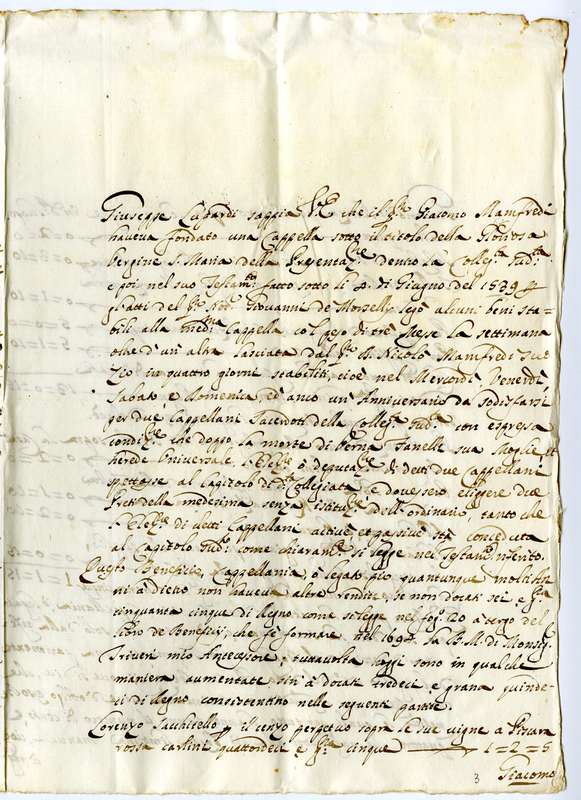 Giuseppe Lupardi sappia V.S. che il q.m Giacomo Manfredi
haveva fondato una Cappella sotto il titolo della Gloriosa
Vergine S. Maria della Presentaz.ne dentro la Colleg.ta sud.ta
e poi nel suo Testam.to fatto sotto li 4. di Giugno del 1539 p
gl'atti del q.m Not. Giovanni de Morsellj legò alcuni beni sta=
bili alla med.ma Cappella col peso di trè Messe la settimana
oltre d'un' altra lasciata dal q.m di Nicolò Manfredi suo
Zio in quattro giorni stabiliti, cioè nel Mercordì Venerdì,
Sabato, e Domenica, ed anco un Anniversario da sodisfarsi
per due Cappellani Sacerdoti della Colleg.ta sud.ta con espressa
condiz.ne che doppo la morte di Perna Fanelle sua Moglie, et
herede Universale, l'Elez.ne ò deputaz.ne di detti due Cappellani
spettasse al Capitolo di d.ta Collegiata, e dovessero eliggere due
Preti della medesima senza istituz.ne dell'ordinario, tanto che
l'Elez.ne di detti Cappellani activè, et passivè stà conceduta
al Capitolo sud.to come chiaram.te si legge nel Testam.to inserto.
Questo Beneficio, Cappellania, ò legato pio quantunque molti An=
ni à dietro non haveva altre rendite, se non docati sei, e g.na
cinquanta cinque di Regno come si legge nel fog.o 20 à tergo del
libro de Beneficij, che fè formare nel 1694 la B.M. di Monsig.r
Triveri mio Antecessore; tuttavolta hoggi sono in qualche
maniera aumentate sin' à docati tredeci, e grana quinde=
ci di Regno consistentino nelle seguenti partite.
Lorenzo Sacchitello p il cenzo perpetuo sopra le sue vigne a Piscara
rossa carlini quattordeci e g.na cinque 1=2=5
Giacomo
3